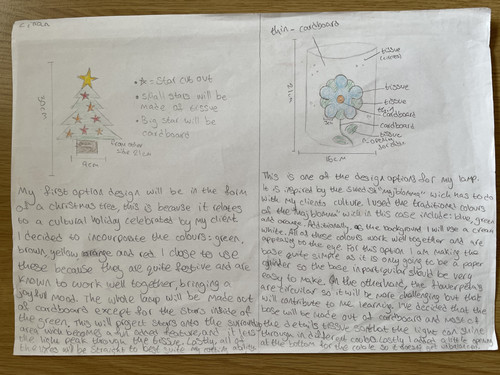 • = Star cut out
• Small stars will be
made of tissue
• Big star will be
cardboard
9cm
My first option design will be in the form
of a christmas tree, this is because it relates
to a cultural holiday celebrated by my client
I decided to incorporate the colours: green,
brown, yellow orange and red. I chose to use
these because they are quite festive and are
known to work well together, bringing a
joyfull mood. The whole lamp will be made out
of cardboard except for the stars inside of
the green, this will project stars onto the
area wich becomes a fun asset feature, and it lets
the light peak through the tissue. Lastly, all of
the lines will be straight to best suite my making ability
thin - cardboard
tissue
tissue
tissue
thin
cardboard
cardboard
tissue
opening
for cable
16cm
This is one of the design options for my lamp.
It is inspired by the swedish "majblomma" wich has to do
with my clients culture. I used the traditional colours
of the "majblomma" wich in this case include: blue, green
and orange. Additionally, as the background I will use a cream
white. All of these colours work well together and are
appealing to the eye. For this option I am making the
base quite simple as it is only going to be a paper
cylinder so the base in particular should be very
easy to make. On the other hand, the flower petals
are circular so it will be more challenging but that
will contribute to me learning. I've decided that the
base will be made out of cardboard and most of
the details tissue so that the light can shine
through in different colors. Lastly I added a little opening
at the bottom for the cable so it doesn't get